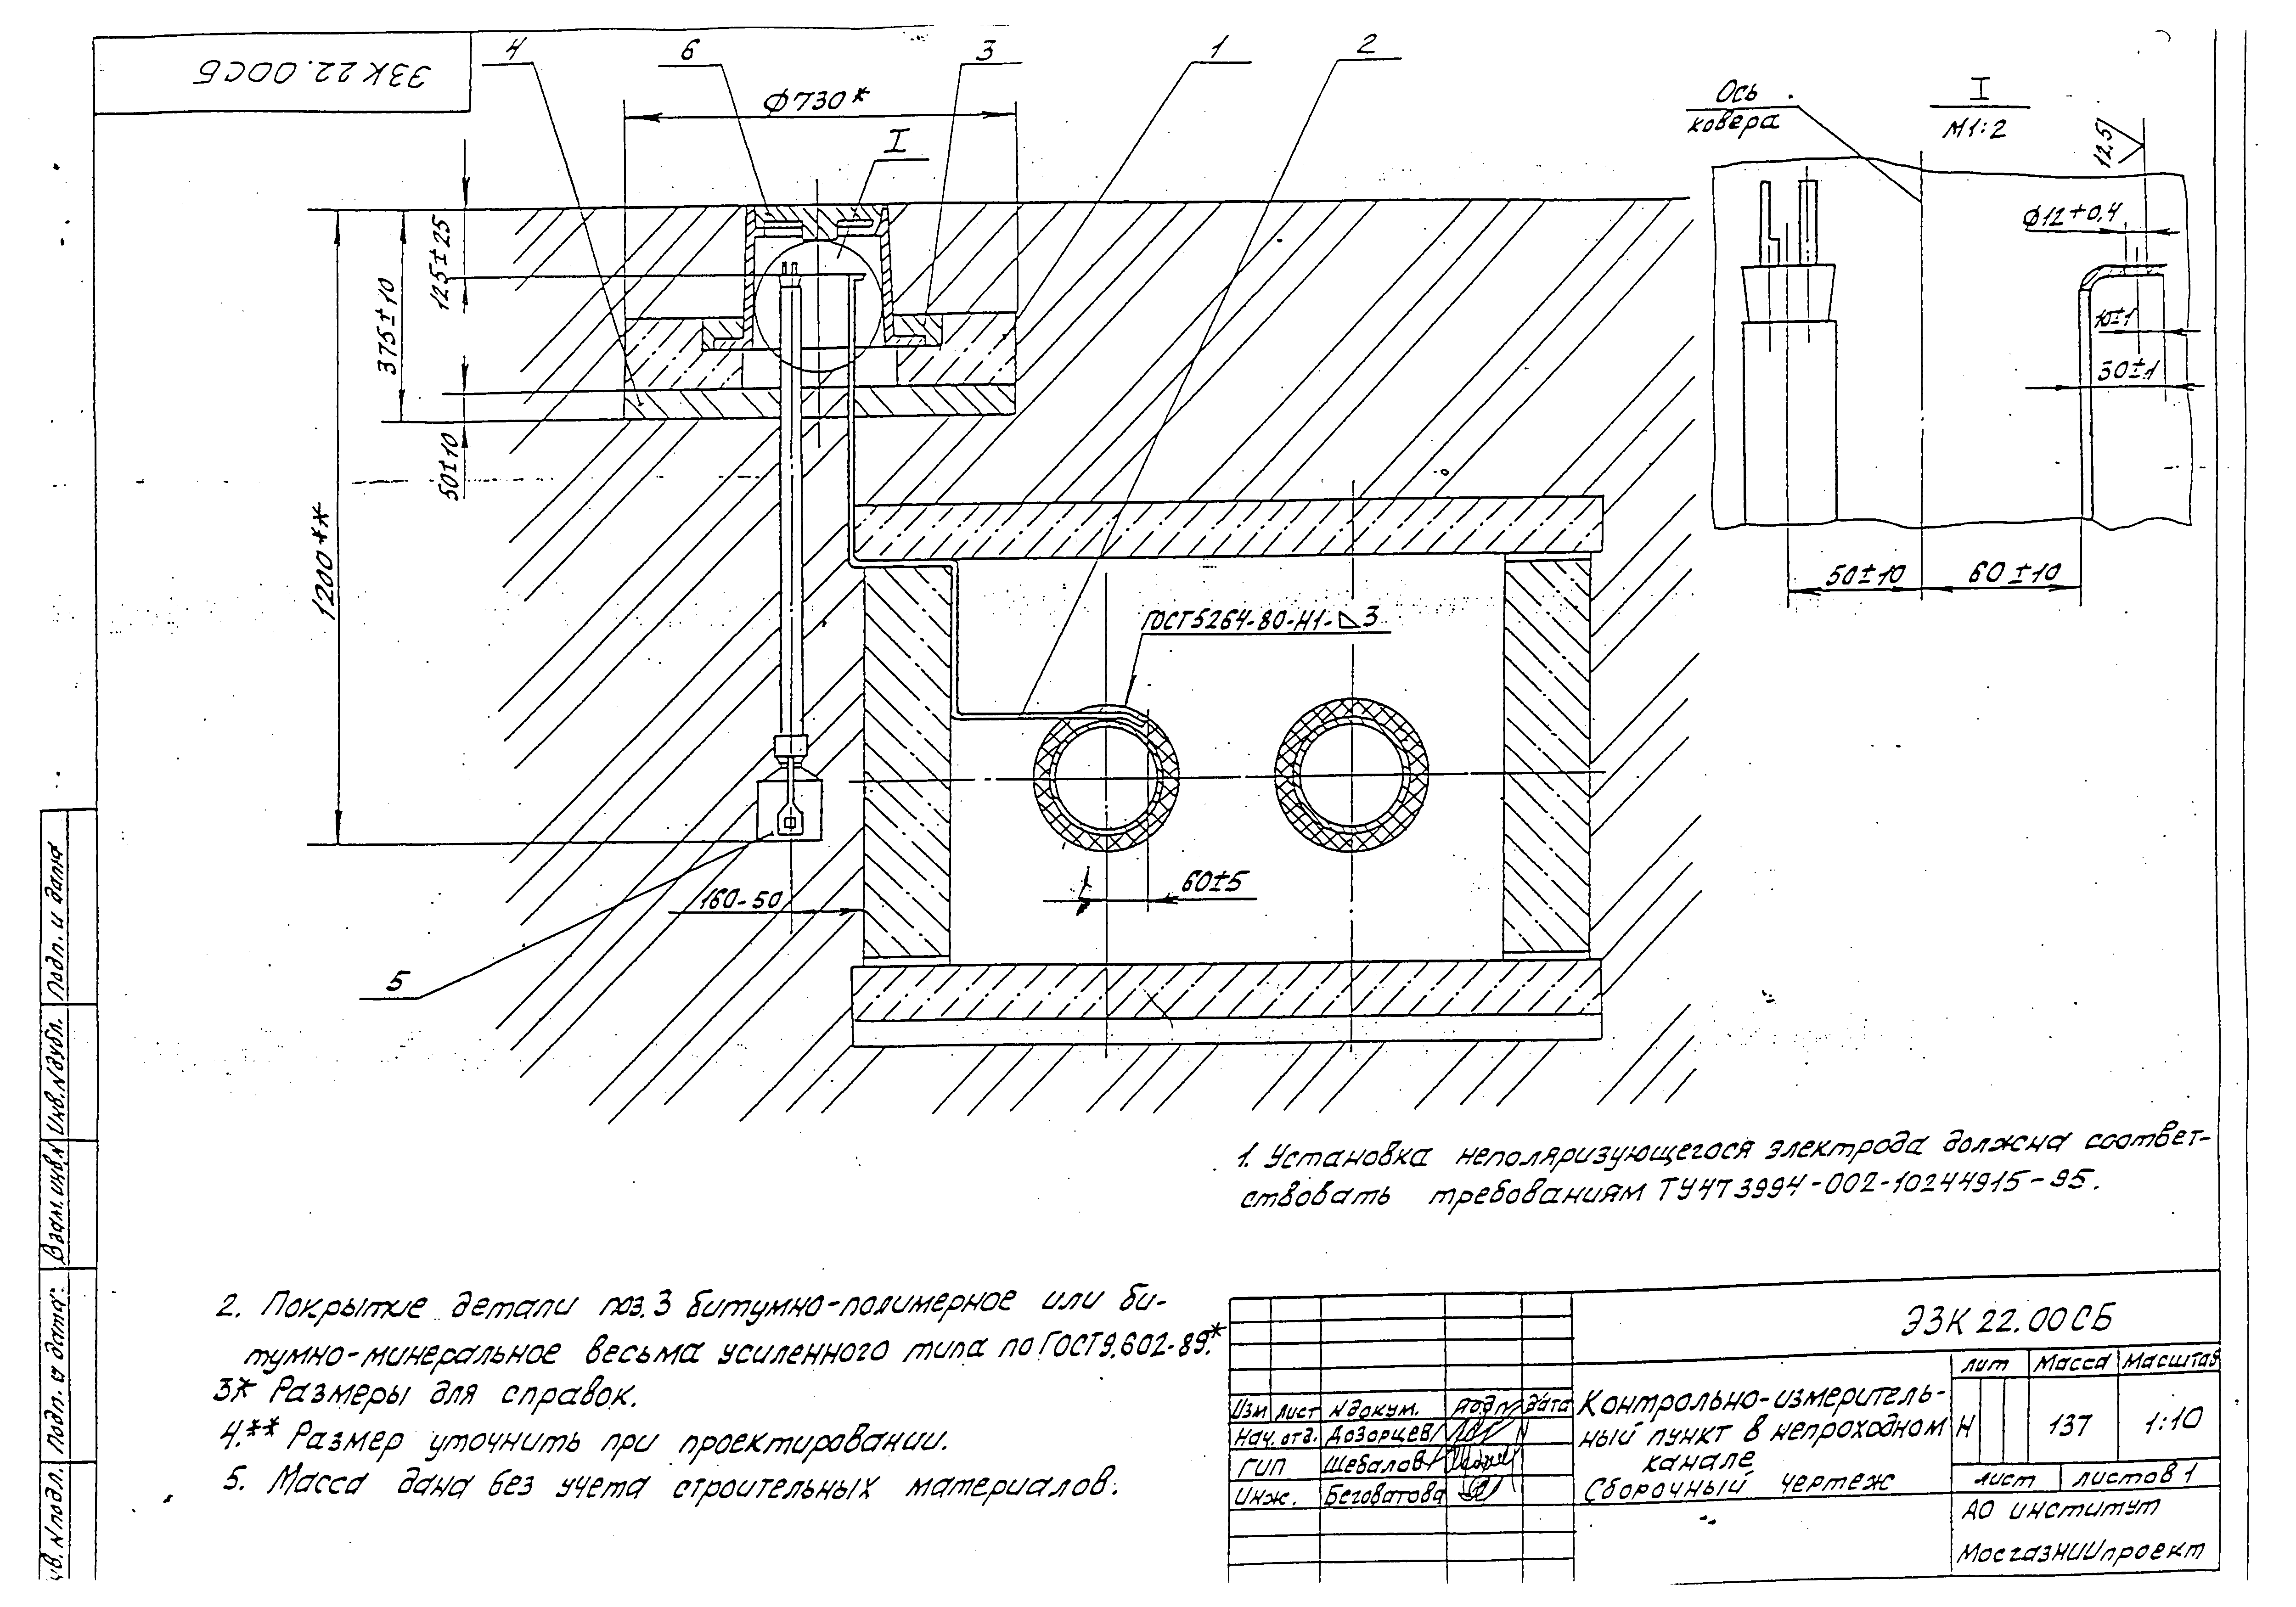 ЭЗК 22.00СБ
4
6
3
1
2
Ø730*
I
Ось
ковера
I
М1:2
12,5
Ø12+0,4
10±1
30±1
50±10
60±10
125±25
375±10
50±10
1200**
ГОСТ5264-80-Н1-◺3
60±5
160-50
5
1. Установка неполяризующегося электрода должна соответ-
ствовать требованиям ТУ4Т3994-002-10244915-95.
2. Покрытие детали поз.3 битумно-полимерное или би-
тумно-минеральное весьма усиленного типа по ГОСТ9.602-89.*
3* Размеры для справок.
4.** Размер уточнить при проектировании.
5. Масса дана без учета строительных материалов.
Подп. и дата
Инв.№дубл.
Взам.инв.№
Подп. и дата
Инв.№подл.
ЭЗК 22.00СБ
Лит Масса Масштаб
Н 137 1:10
Изм Лист №докум. Подп. Дата
Нач.отд. Дозорцев
ГИП Шебалов
Инж. Беговатова
Контрольно-измеритель-
ный пункт в непроходном
канале
Сборочный чертеж
Лист Листов 1
АО институт
МосгазНИИпроект